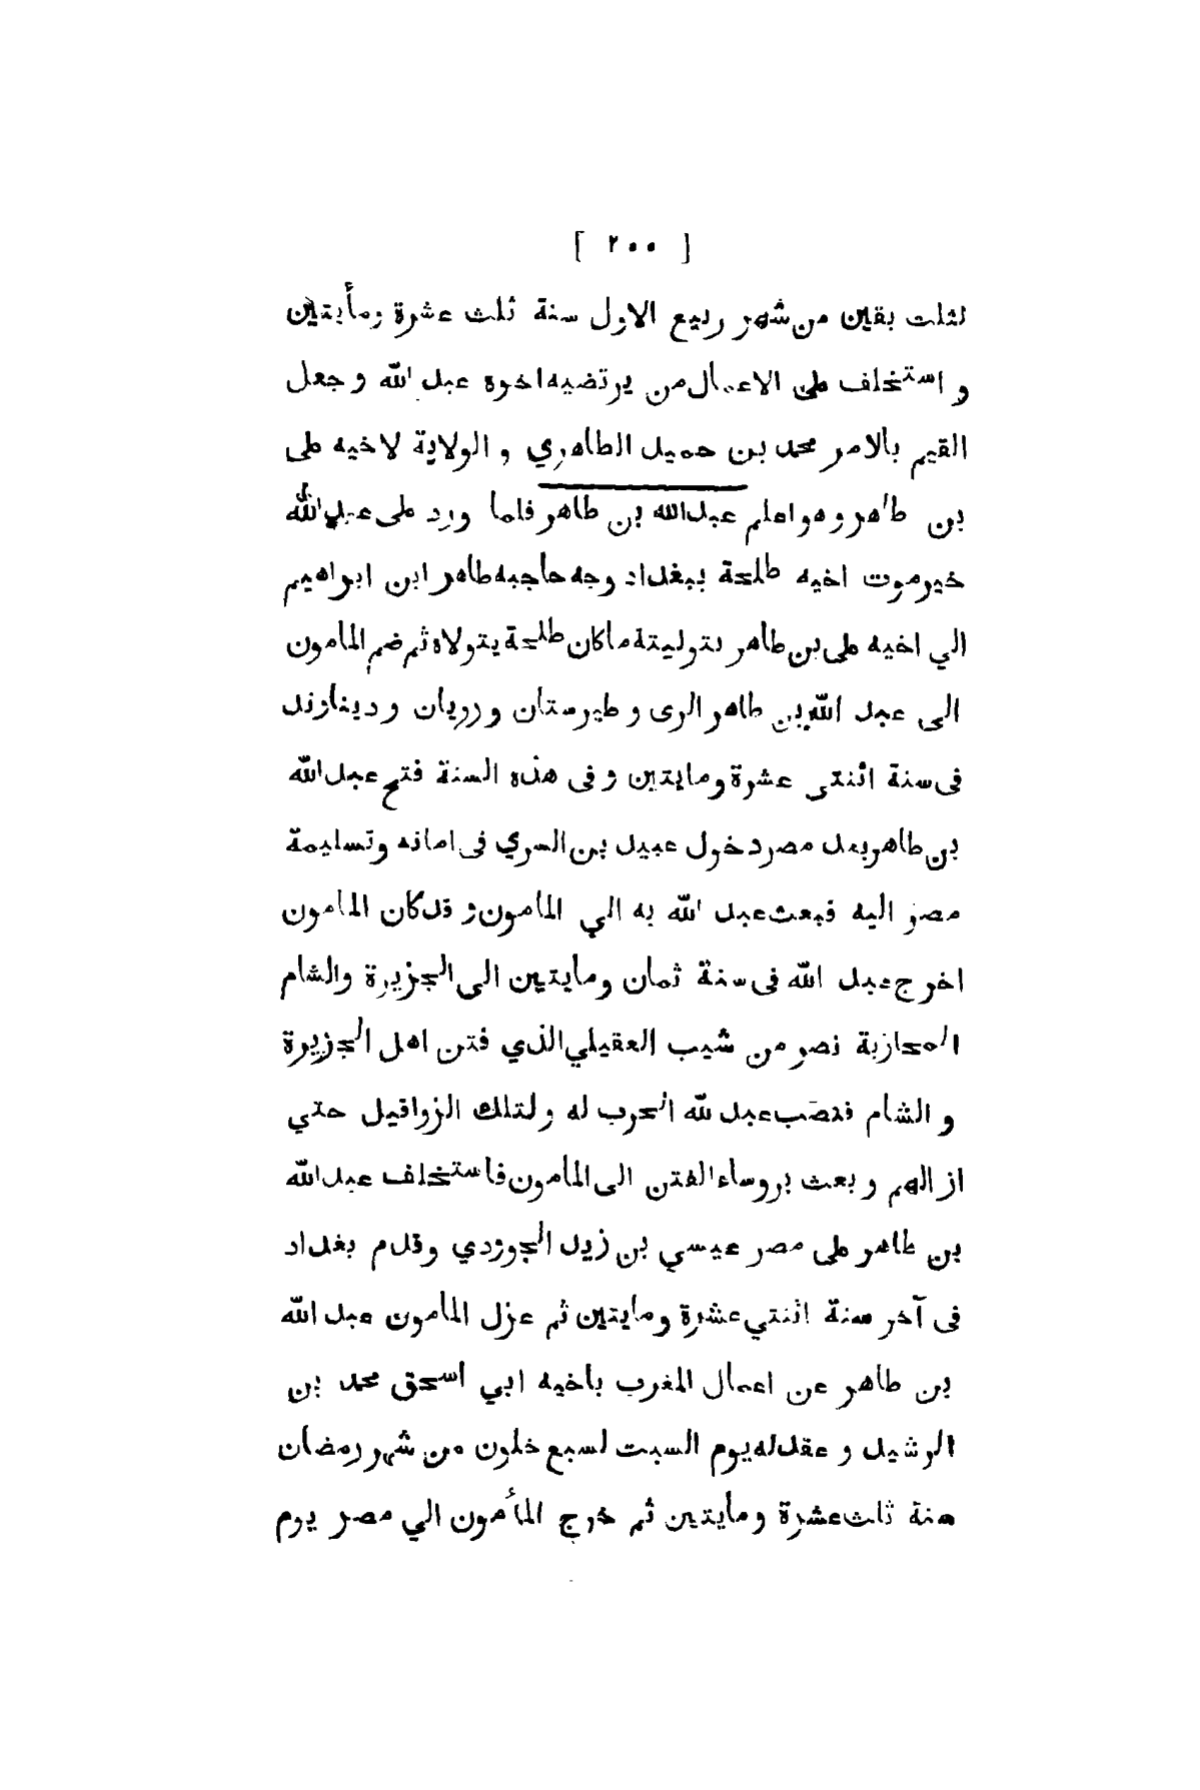 [ ٢٠٠ ]
لثلت بقين من شهر ربيع الاول سنة ثلث عشرة ومأيتين
و استخلف على الاعمال من يرتضيه اخوه عبد الله و جعل
القيم بالامر محمد بن حميد الطاهري و الولاية لاخيه على
بن طاهر وهو اعلم عبدالله بن طاهر فلما ورد على عبد الله
خير موت اخيه طلحة ببغداد وجه حاجبه طاهر ابن ابراهيم
الي اخيه على بن طاهر بتوليتة ماكان طلحة يتولاه ثم ضم المامون
الى عبد الله بن طاهر الرى و طبرستان و رويان و ديناوند
فى سنة اثنتى عشرة ومايتين و فى هذه السنة فتح عبد الله
بن طاهر بعد مصر دخول عبيد بن السري فى امانه وتسليمة
مصر اليه فبعث عبد الله به الي المامون و قد كان المامون
اخرج عبد الله فى سنة ثمان ومايتين الى الجزيرة والشام
المحازبة نصر من شيب العقيلي الذي فتن اهل الجزيرة
و الشام فنصب عبد لله الحرب له ولتلك الزواقيل حتي
ازالهم و بعث بروساء الفتن الى المامون فاستخلف عبدالله
بن طاهر على مصر عيسي بن زيد الجوزدي وقدم بغداد
فى آخر سنة اثنتي عشرة ومايتين ثم عزل المامون عبد الله
بن طاهر عن اعمال المغرب باخيه ابي اسحق محمد بن
الرشيد و عقد له يوم السبت لسبع خلون من شهر رمضان
سنة ثلث عشرة ومأيتين ثم خرج المأمون الي مصر يوم